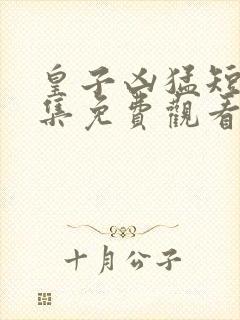 皇子凶猛短
集免費觀看
十月公子